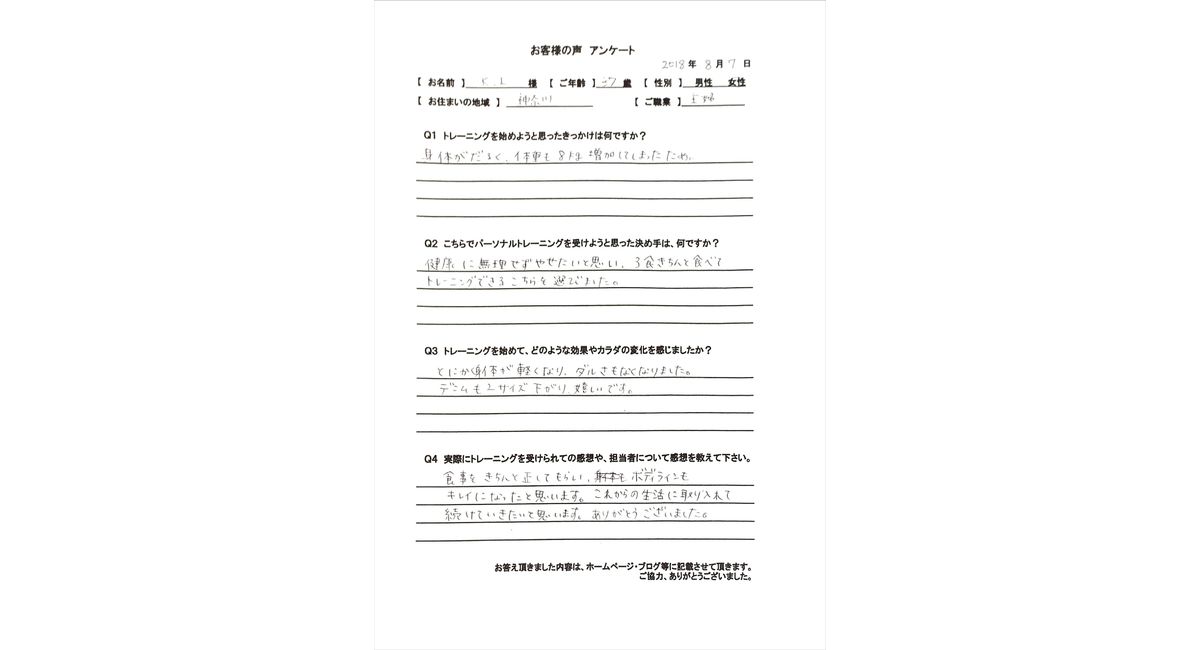 お客様の声 アンケート
2018年 8月 7日
【 お名前 】 K.I 様 【 ご年齢 】 37 歳 【 性別 】 男性 女性
【 お住まいの地域 】 神奈川 【 ご職業 】 主婦
Q1 トレーニングを始めようと思ったきっかけは何ですか?
身体がだるく、体重も8kg増加してしまったため。
Q2 こちらでパーソナルトレーニングを受けようと思った決め手は、何ですか?
健康に無理せずやせたいと思い、3食きちんと食べて
トレーニングできるこちらを選びました。
Q3 トレーニングを始めて、どのような効果やカラダの変化を感じましたか?
とにかく身体が軽くなり、ダルさもなくなりました。
デニムも2サイズ下がり、嬉しいです。
Q4 実際にトレーニングを受けられての感想や、担当者について感想を教えて下さい。
食事をきちんと正してもらい、ボディラインも
キレイになったと思います。これからの生活に取り入れて
続けていきたいと思います。ありがとうございました。
お答え頂きました内容は、ホームページ・ブログ等に記載させて頂きます。
ご協力、ありがとうございました。